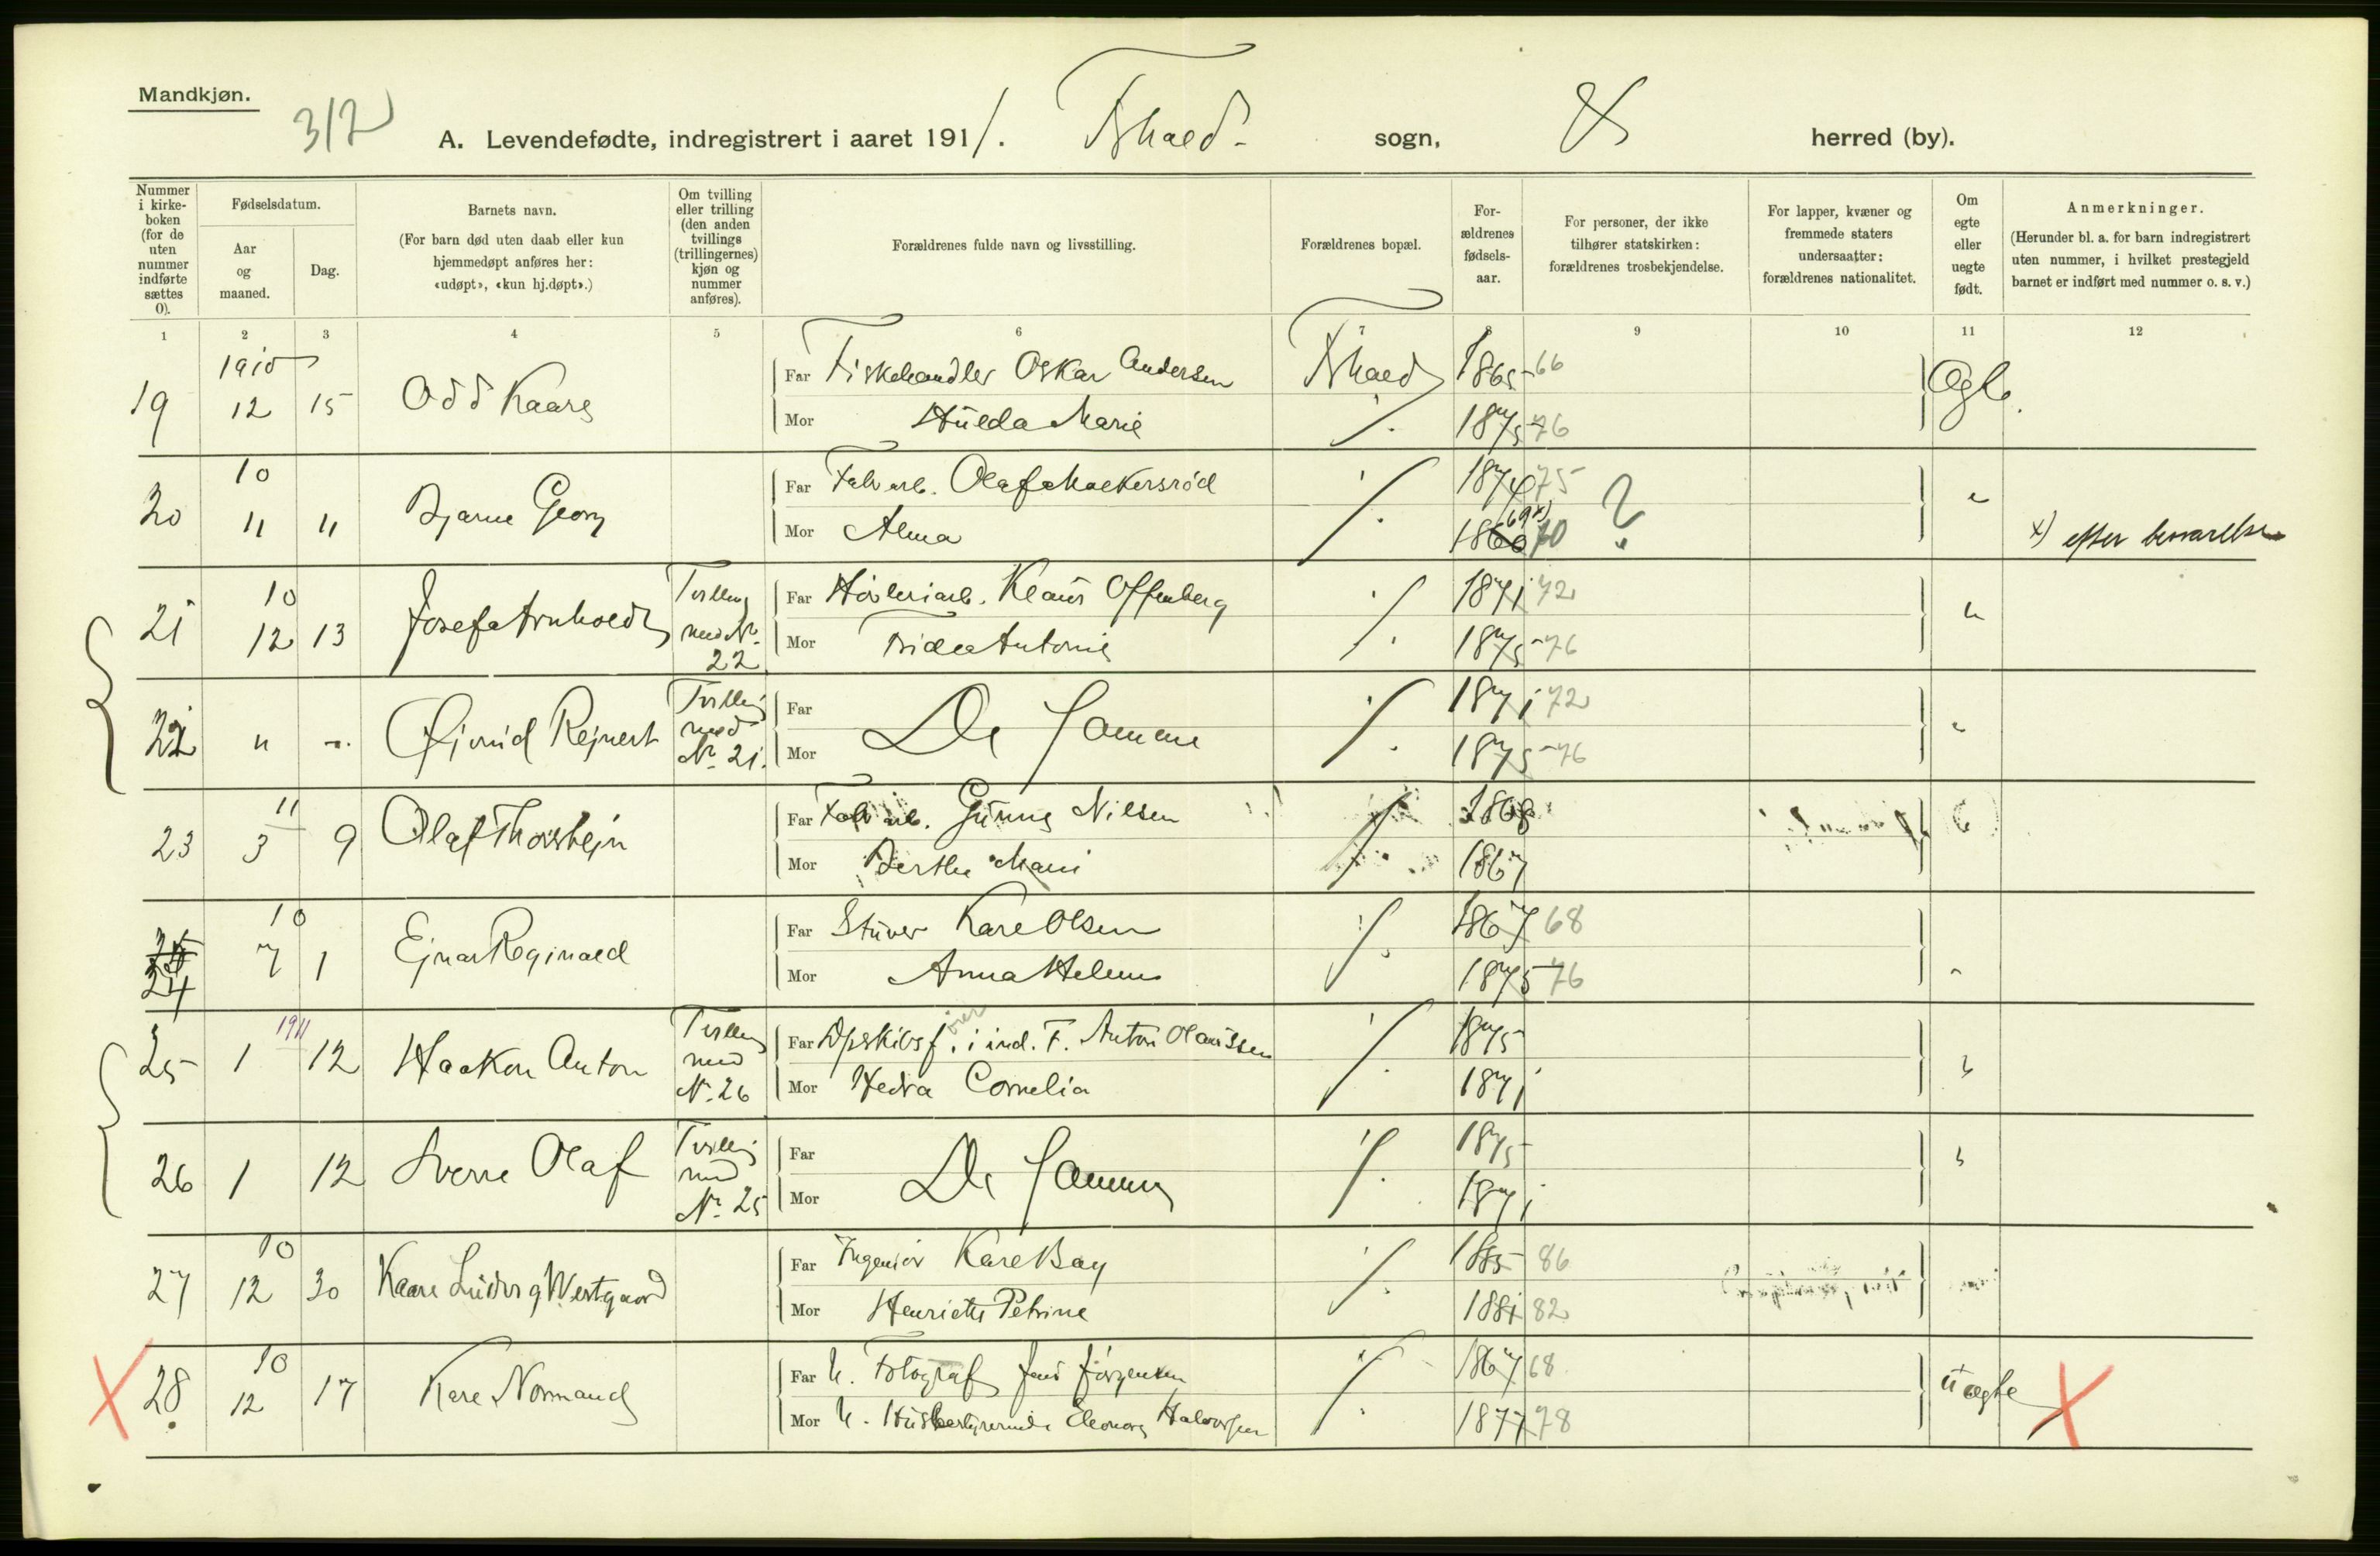 Mandkjøn.
312
A. Levendefødte, indregistrert i aaret 1911. Fr.hald - sogn, & herred (by).
Nummer i kirke-boken (for de uten nummer indførte sættes 0).
Fødselsdatum.
Aar og maaned.
Dag.
Barnets navn.
(For barn død uten daab eller kun hjemmedøpt anføres her: «udøpt», «kun hj.døpt».)
Om tvilling eller trilling (den anden tvillings (trillingernes) kjøn og nummer anføres).
Forældrenes fulde navn og livsstilling.
Forældrenes bopæl.
For-ældrenes fødsels-aar.
For personer, der ikke tilhører statskirken: forældrenes trosbekjendelse.
For lapper, kvæner og fremmede staters undersaatter: forældrenes nationalitet.
Om egte eller uegte født.
Anmerkninger.
(Herunder bl. a. for barn indregistrert uten nummer, i hvilket prestegjeld barnet er indført med nummer o. s. v.)
1 2 3 4 5 6 7 8 9 10 11 12
19 1910 12 15 Odd Kaare Far Fiskehandler Oskar Andersen Fr.hald 1865-66 Egte
Mor Hulda Marie 1875 76
20 10 11 11 Bjarne Georg Far Fabr.arb. Olaf Mackersröd 1874 75 "
Mor Alma 1860 69 x) 70 ? x) efter besvarelse
21 10 12 13 Josef Arnholdt Tvilling med No. 22 Far Høvleriarb. Klaus Offenberg 1871 72 "
Mor Frida Antonie 1875-76
22 " " Øjvind Rejnert Tvilling med No. 21. Far De Samme 1871 72 "
Mor 1875-76
23 11 3 9 Olaf Thorstejn Far Fabr.arb. Gunne Nilsen 1868
Mor Berthe Marie 1867
24 10 7 1 Ejnar Reginald Far Stuver Karl Olsen 1867 68
Mor Anna Helene 1875 76 "
25 1911 1 12 Haakon Anton Tvilling med N. 26 Far Opskibsf. i ind. F. Anton Olaussen 1875
Mor Hedva Cornelia 1871 "
26 1 12 Sverre Olaf Tvilling med No. 25 Far De Samme 1875 "
Mor 1871
27 10 12 30 Kaare Ludvig Westgaard Far Ingeniør Karl Bay 1885 86
Mor Henriette Petrine 1881 82
28 10 12 17 Kare Normand Far U. Fotograf Jens Jörgensen 1867 68 uægte
Mor U. Husbestyrerinde Eleonora Halvorsen 1877 78